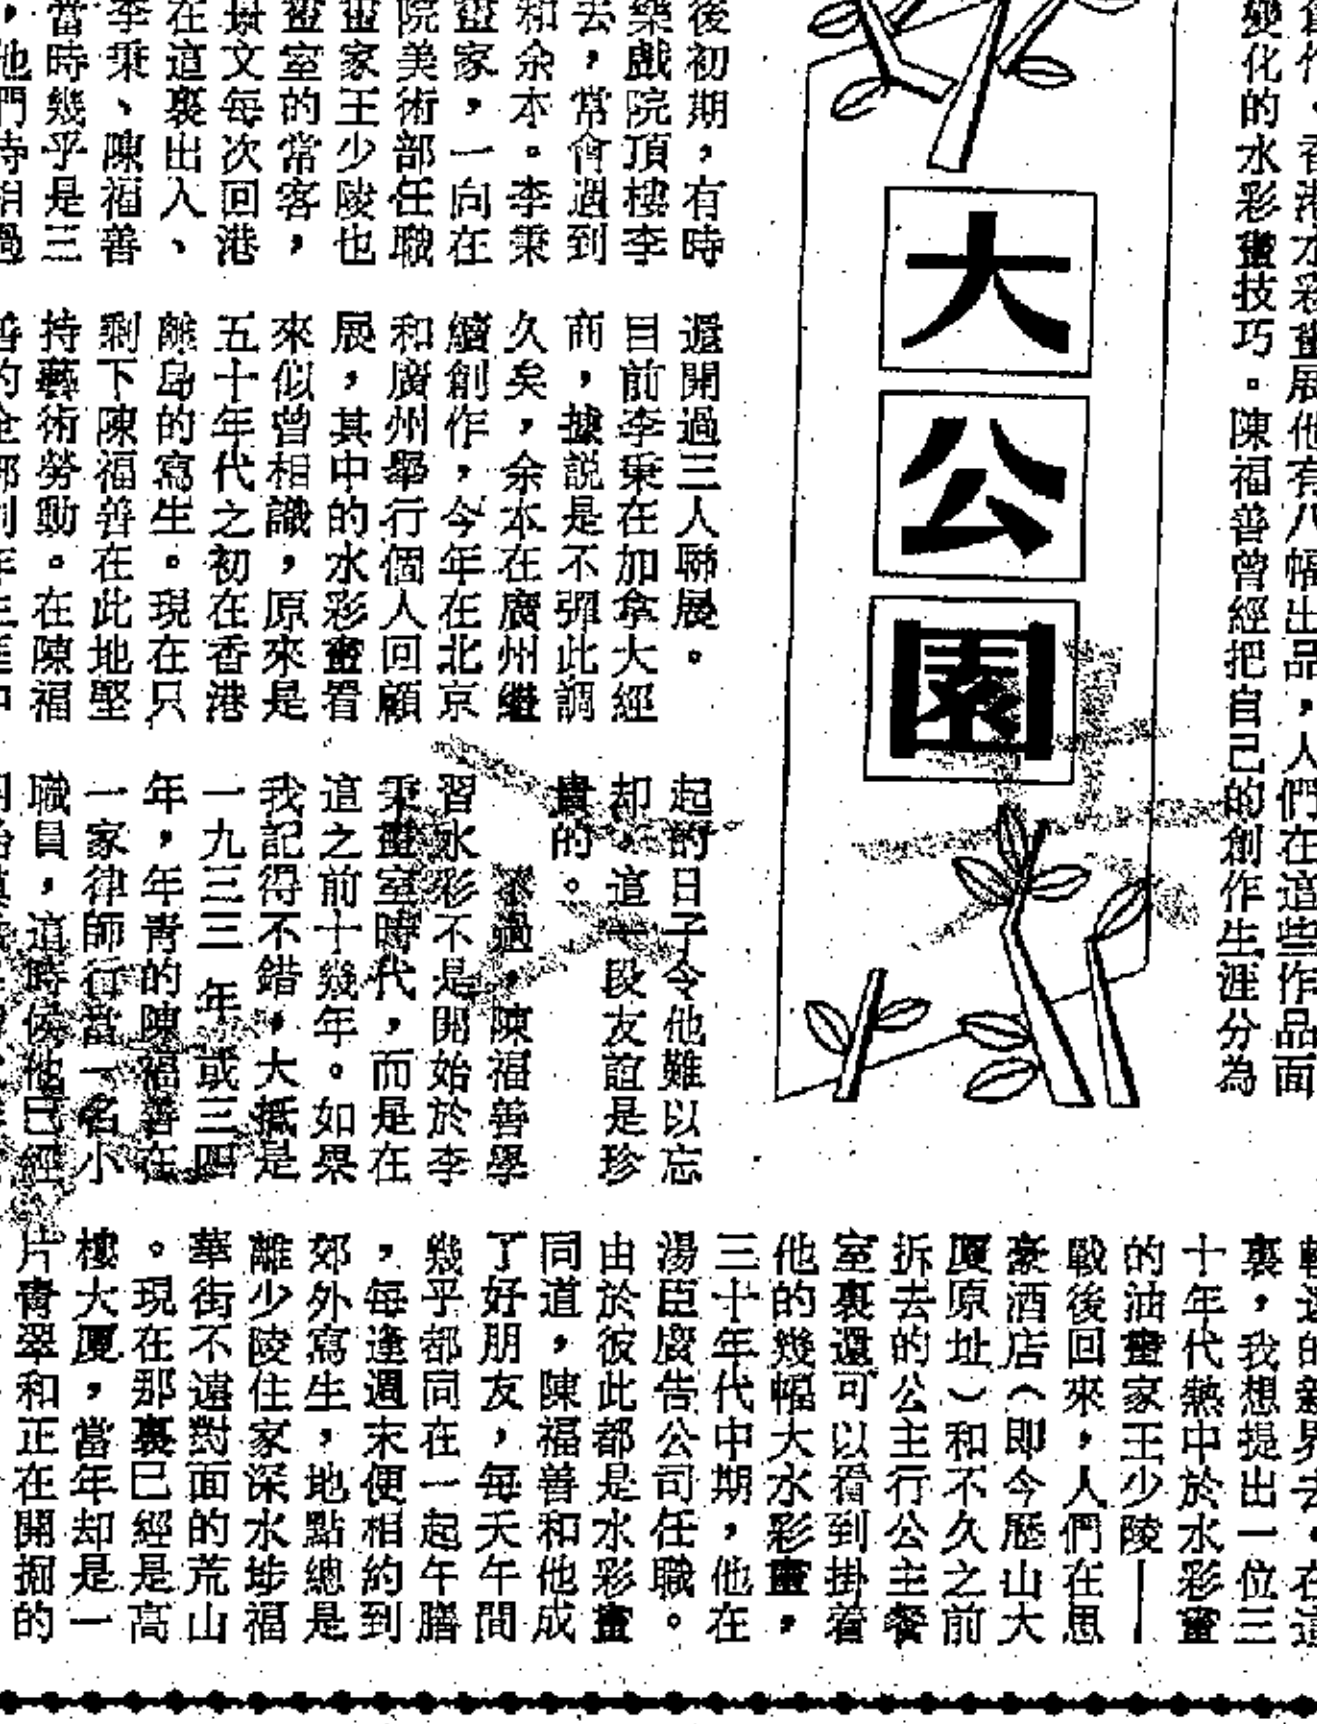 創作、香港水彩畫展他有八幅出品，人們在這些作品面
變化的水彩畫技巧。陳福善曾經把自己的創作生涯分為
大公園
後初期，有時
樂戲院頂樓李
去，常會遇到
和余本。李秉
畫家，一向在
院美術部任職
畫家王少陵也
畫室的常客，
景文每次回港
在這裏出入、
李秉、陳福善
當時幾乎是三
，他們時相過
還開過三人聯展。
目前李秉在加拿大經
商，據說是不彈此調
久矣，余本在廣州繼
續創作，今年在北京
和廣州舉行個人回顧
展，其中的水彩畫看
來似曾相識，原來是
五十年代之初在香港
離島的寫生。現在只
剩下陳福善在此地堅
持藝術勞動。在陳福
善的全部創作生涯中
起的日子令他難以忘
却，這一段友誼是珍
貴的。
不過，陳福善學
習水彩不是開始於李
秉畫室時代，而是在
這之前十幾年。如果
我記得不錯，大抵是
一九三三年或三四
年，年青的陳福善在
一家律師行當一名小
職員，這時候他已經
的新界去。在這
裏，我想提出一位三
十年代熱中於水彩畫
的油畫家王少陵——
戰後回來，人們在思
豪酒店（即今歷山大
厦原址）和不久之前
拆去的公主行公主餐
室裏還可以看到掛着
他的幾幅大水彩畫，
三十年代中期，他在
湯臣廣告公司任職。
由於彼此都是水彩畫
同道，陳福善和他成
了好朋友，每天午間
幾乎都同在一起午膳
，每逢週末便相約到
郊外寫生，地點總是
離少陵住家深水埗福
華街不遠對面的荒山
。現在那裏已經是高
樓大厦，當年却是一
片青翠和正在開掘的